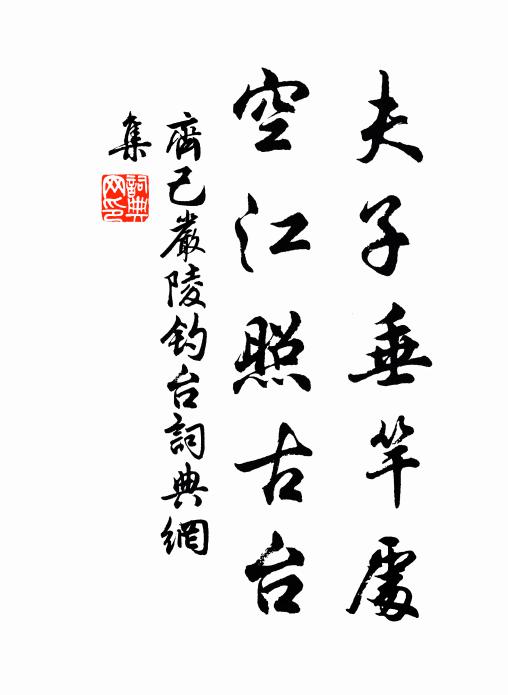 夫子垂竿處
空江照古台
齊己嚴陵釣台詞典網
集
詞典
网印